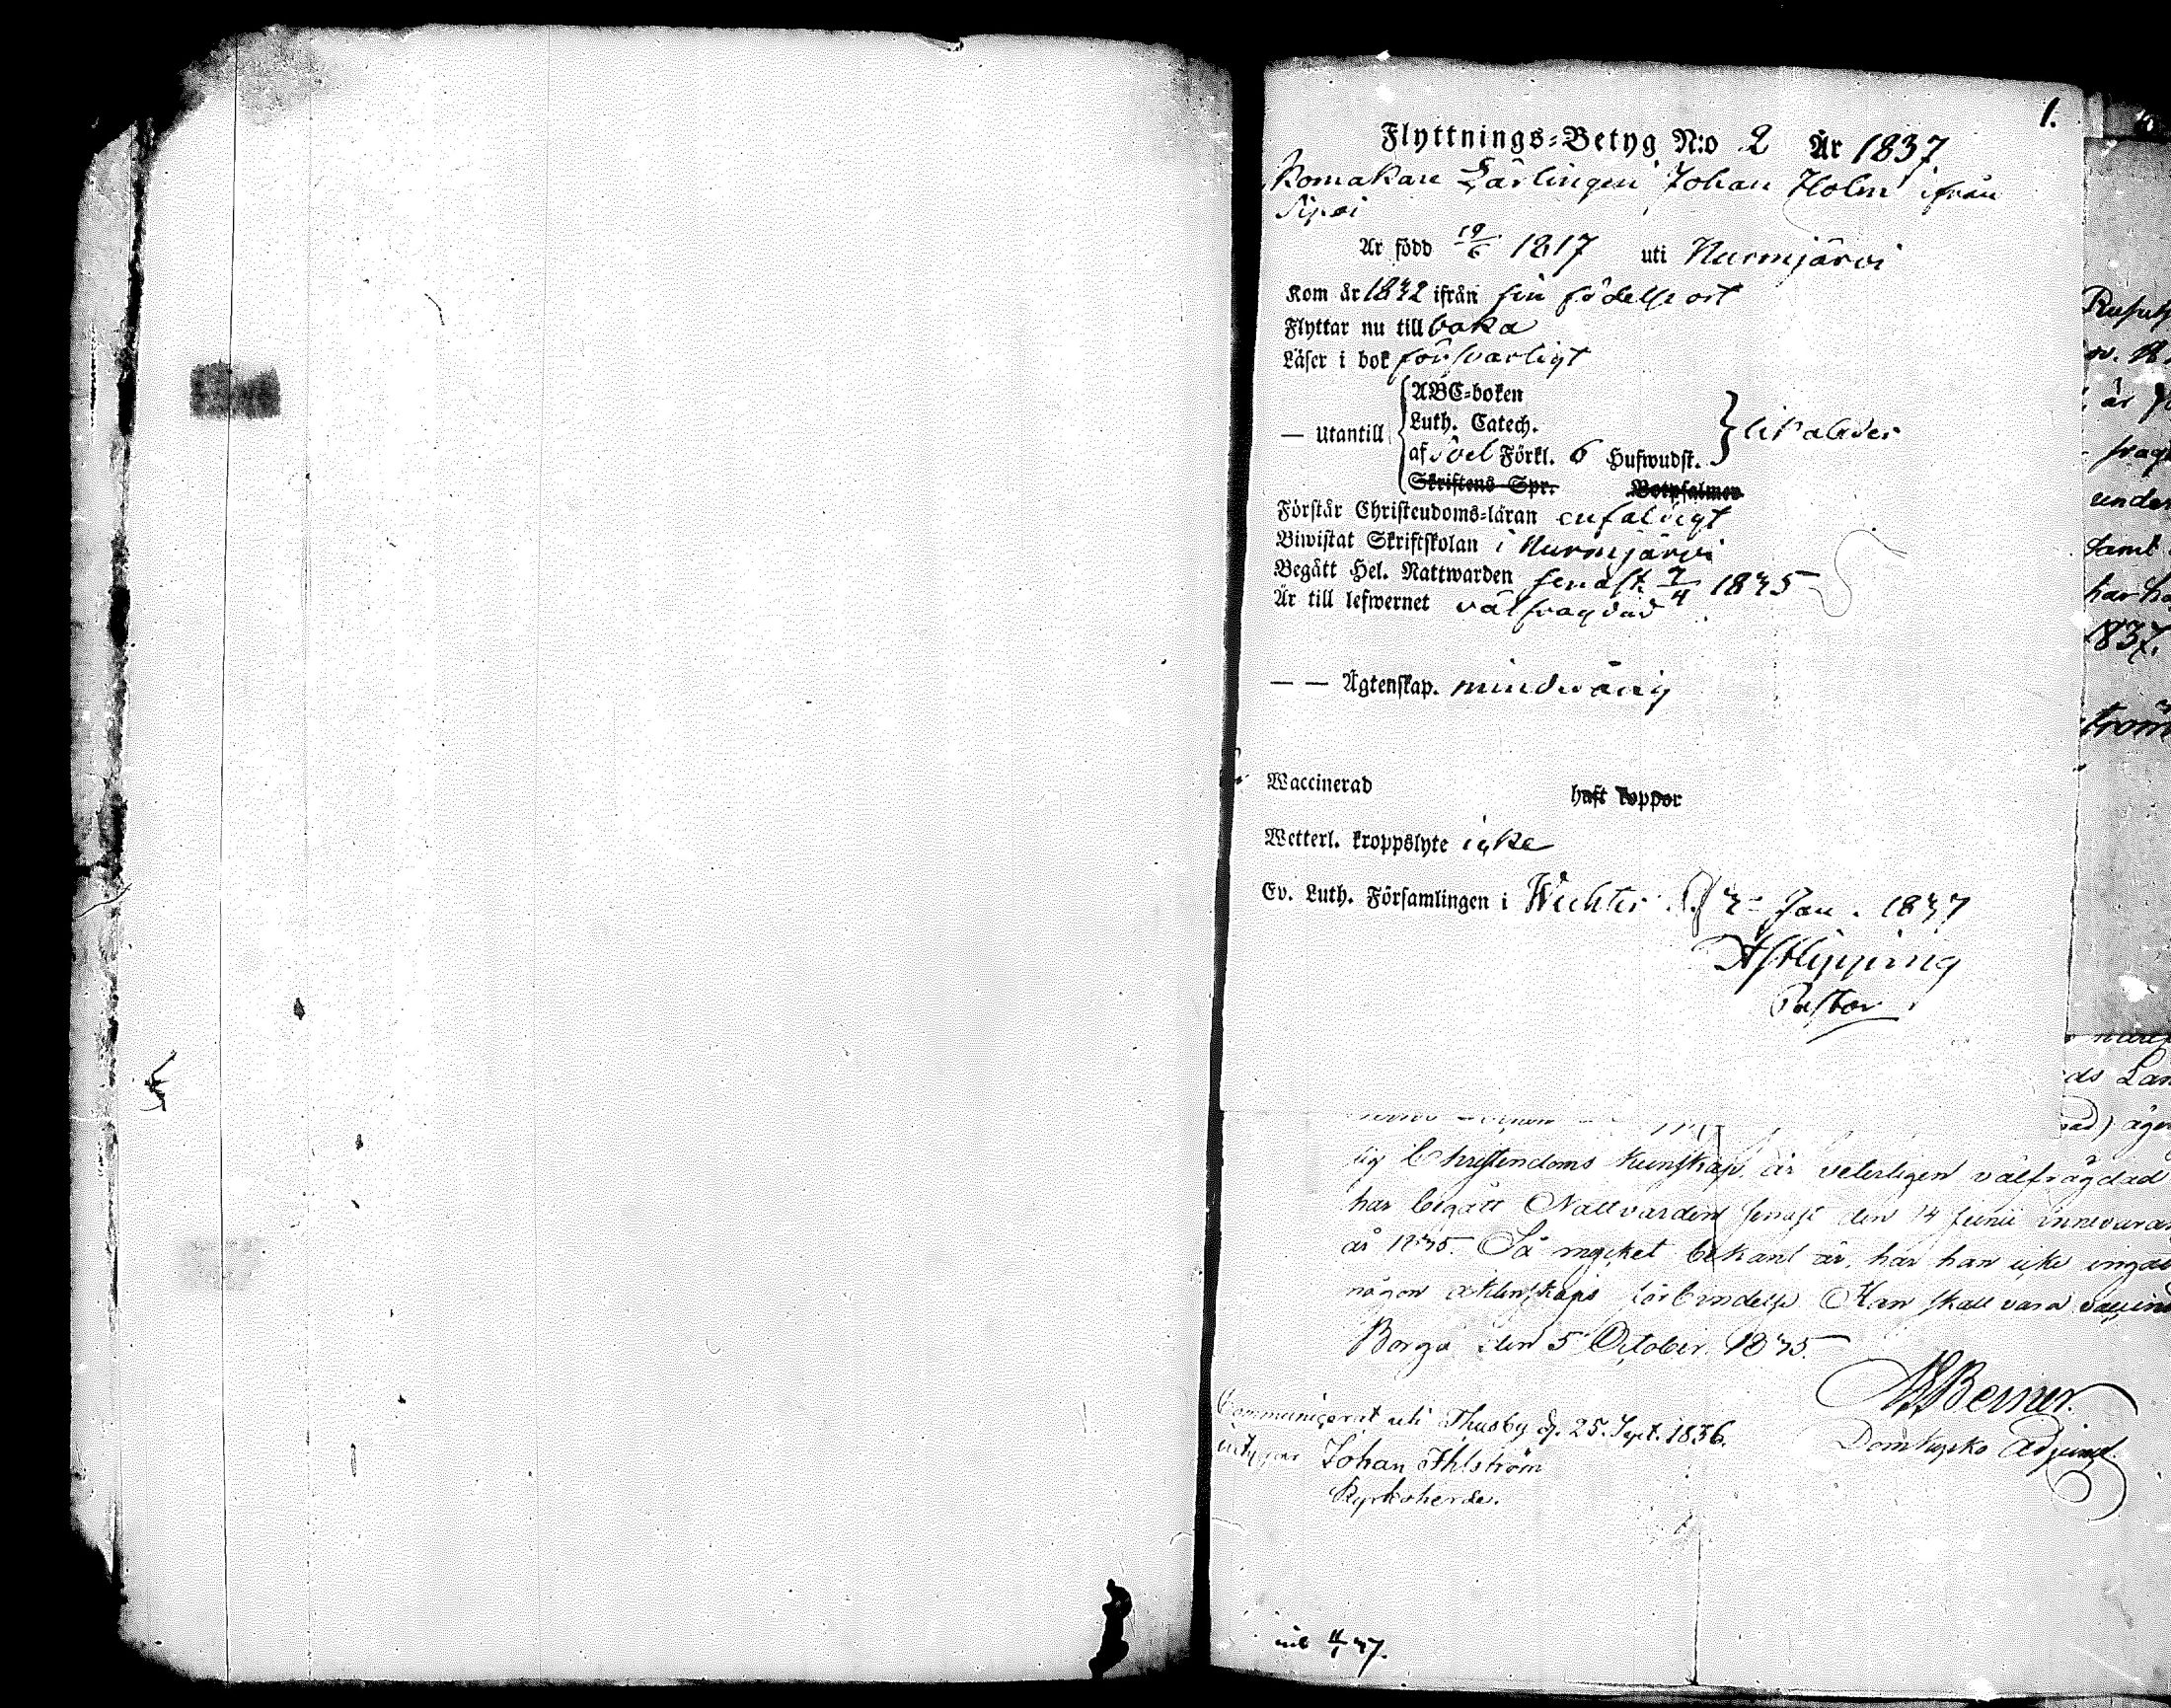 1.
Flyttnings-Betyg N:o 2 År 1837
Komakare Lärlingen Johan Holm ifrån
Är född 19/6 1817 uti Nurmjärvi
Kom år 1832 ifrån sin födelseort
Flyttar nu till baka
Läser i bok försvarligt
— Utantill
ABC-boken
Luth. Catech.
af Förkl. 6 Hufwudst.
likaledes
Skriftens Spr. Botpsalmer
Förstår Christendoms-läran enfaldigt
Biwistat Skriftskolan i Nurmjärvi
Begått Hel. Nattwarden senast 7/4 1835
Är till lefwernet välfrägdad
— — Ägtenskap. mindrårig
Waccinerad haft koppor
Wetterl. kroppslyte icke
Ev. Luth. Församlingen i Wichtis d 3 Jan. 1837
Pastor
lig Christendoms kunskap, är veterligen välfrägdad
har begått Nattvarden senast den 14 Junii
år 1835. Så mycket bekant är, har han icke
någon äktenskaps förbindelse Han skall vara
Borgå den 5 October 1835.
Communicerat uti Thusby d. 25. Sept. 1836.
Johan Ahlström
Kyrkoherde.
Rusut
är
under
samt
har
1837.
tröm
ds Lan